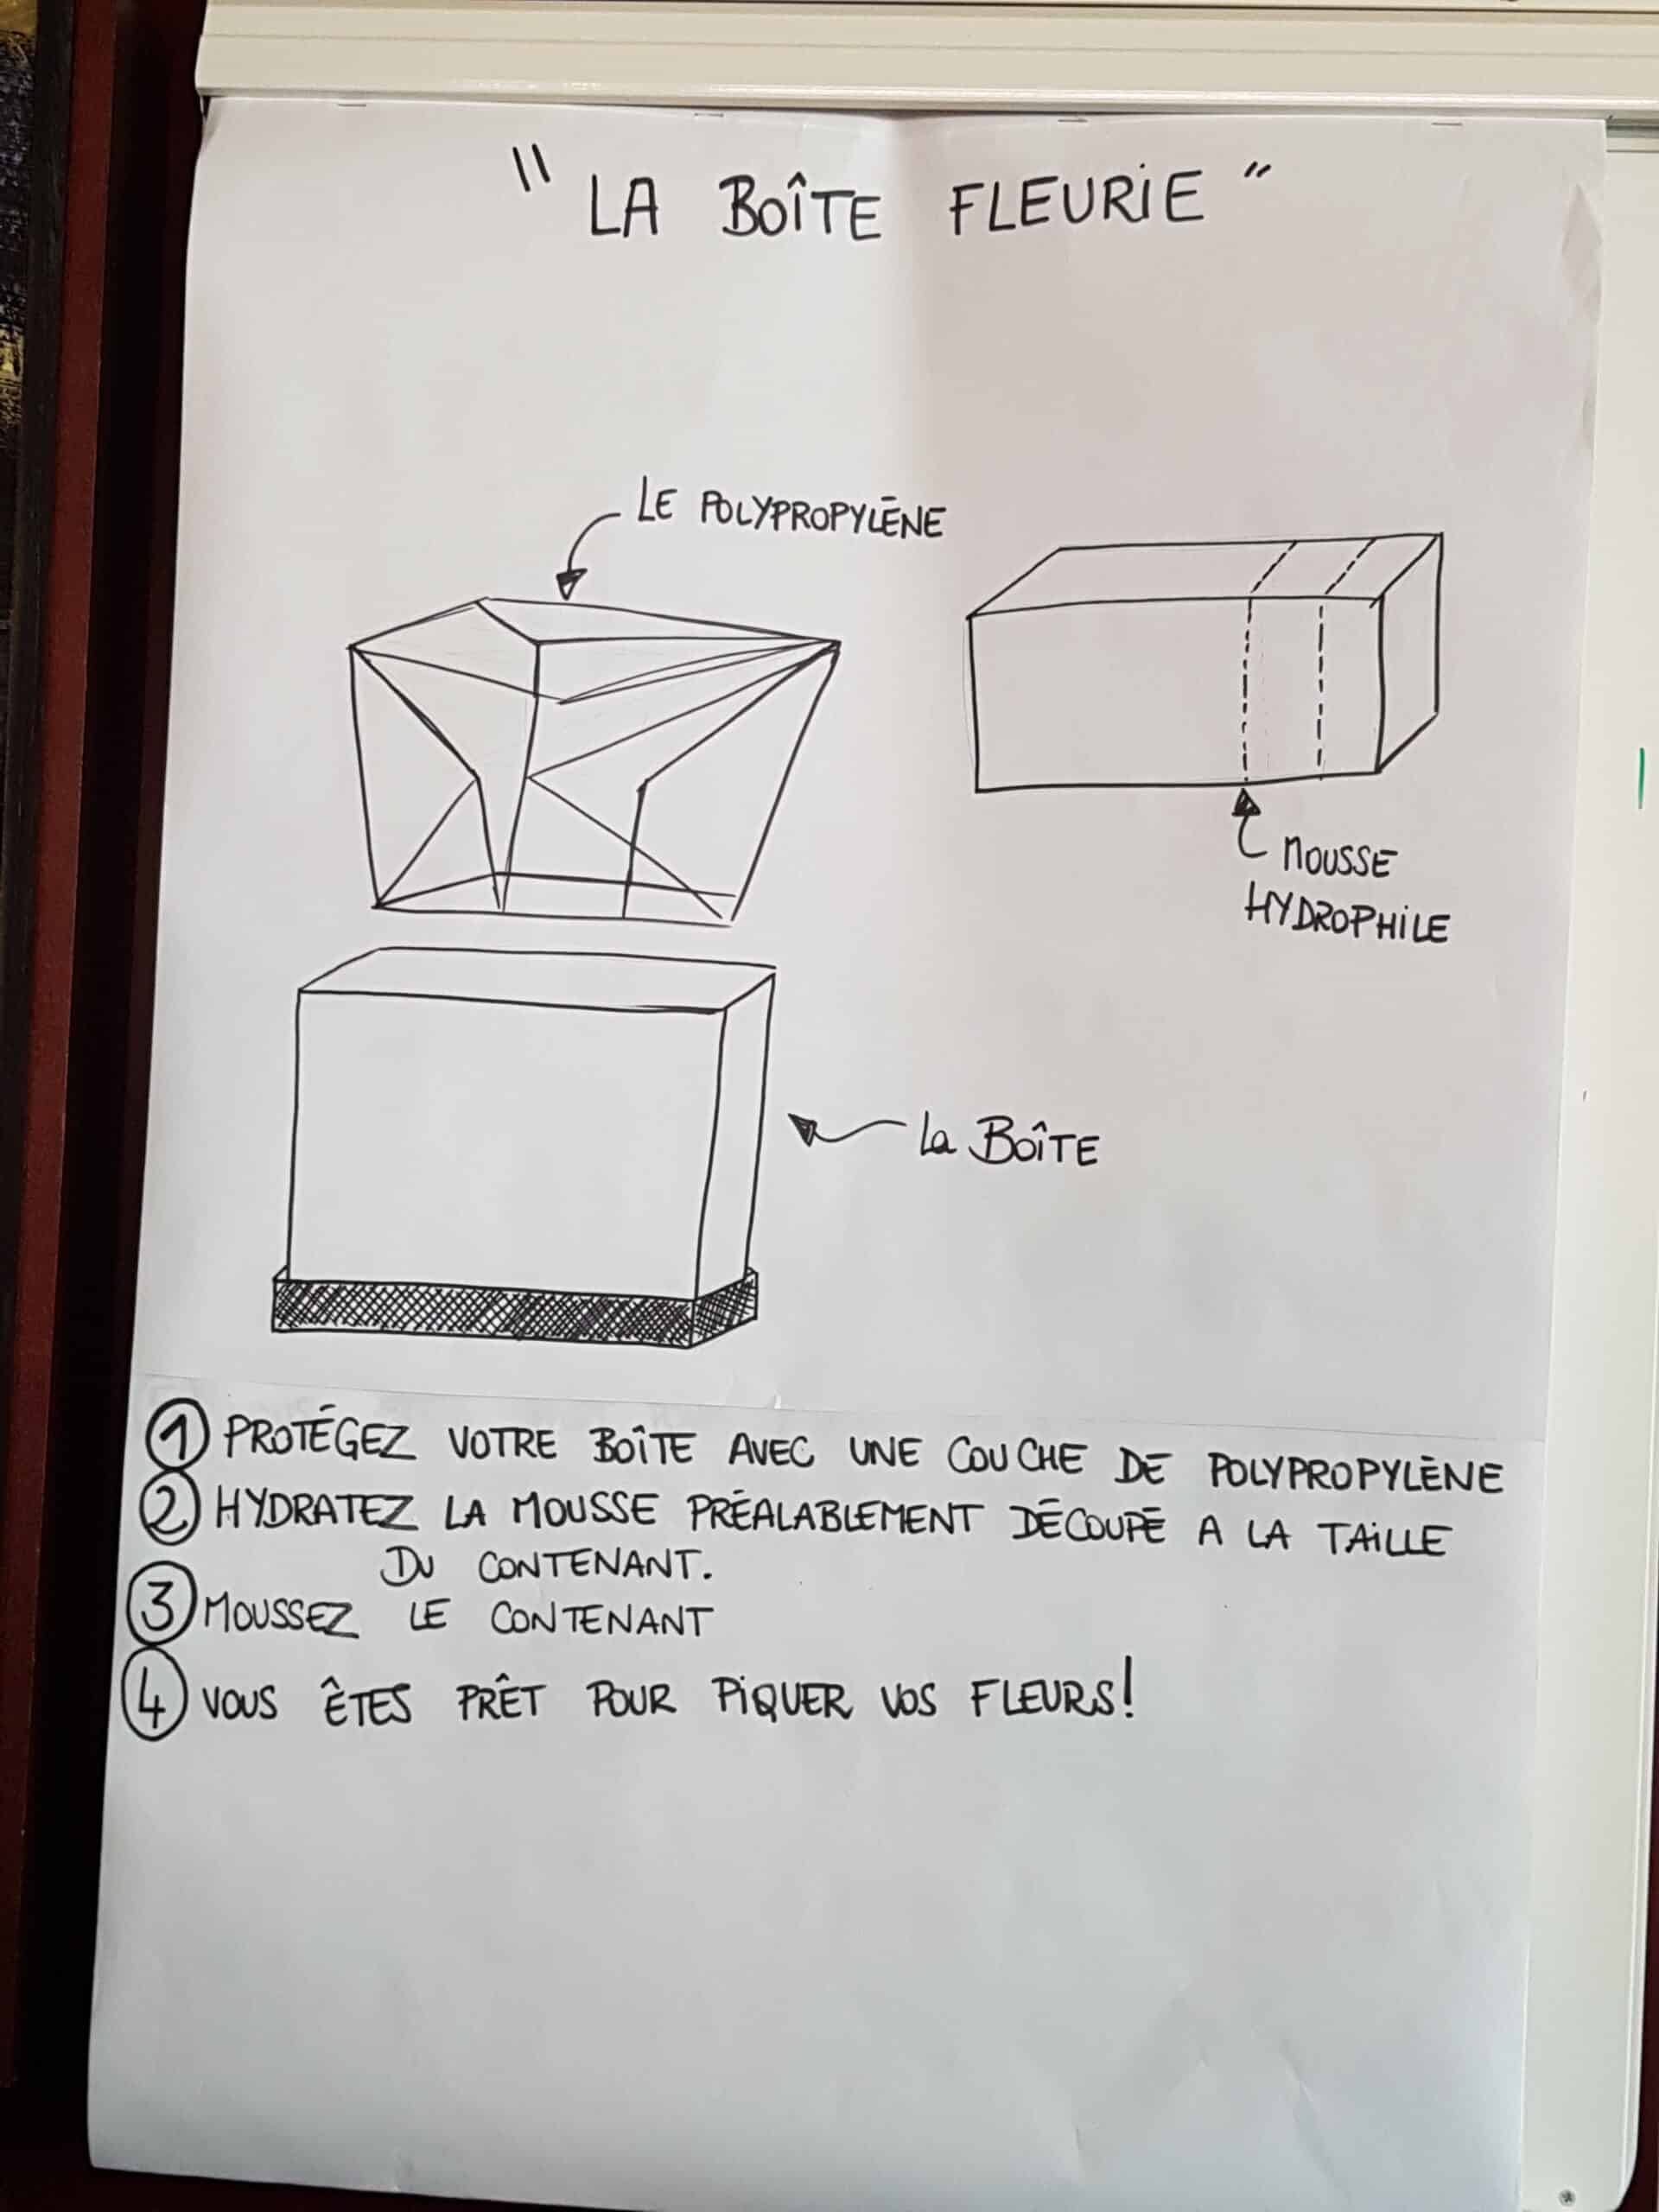 " LA BOÎTE FLEURIE "
LE POLYPROPYLÈNE
MOUSSE
HYDROPHILE
La BOÎTE
1 PROTÉGEZ VOTRE BOÎTE AVEC UNE COUCHE DE POLYPROPYLÈNE
2 HYDRATEZ LA MOUSSE PRÉALABLEMENT DÉCOUPÉ A LA TAILLE
DU CONTENANT.
3 MOUSSEZ LE CONTENANT
4 VOUS ÊTES PRÊT POUR PIQUER VOS FLEURS!